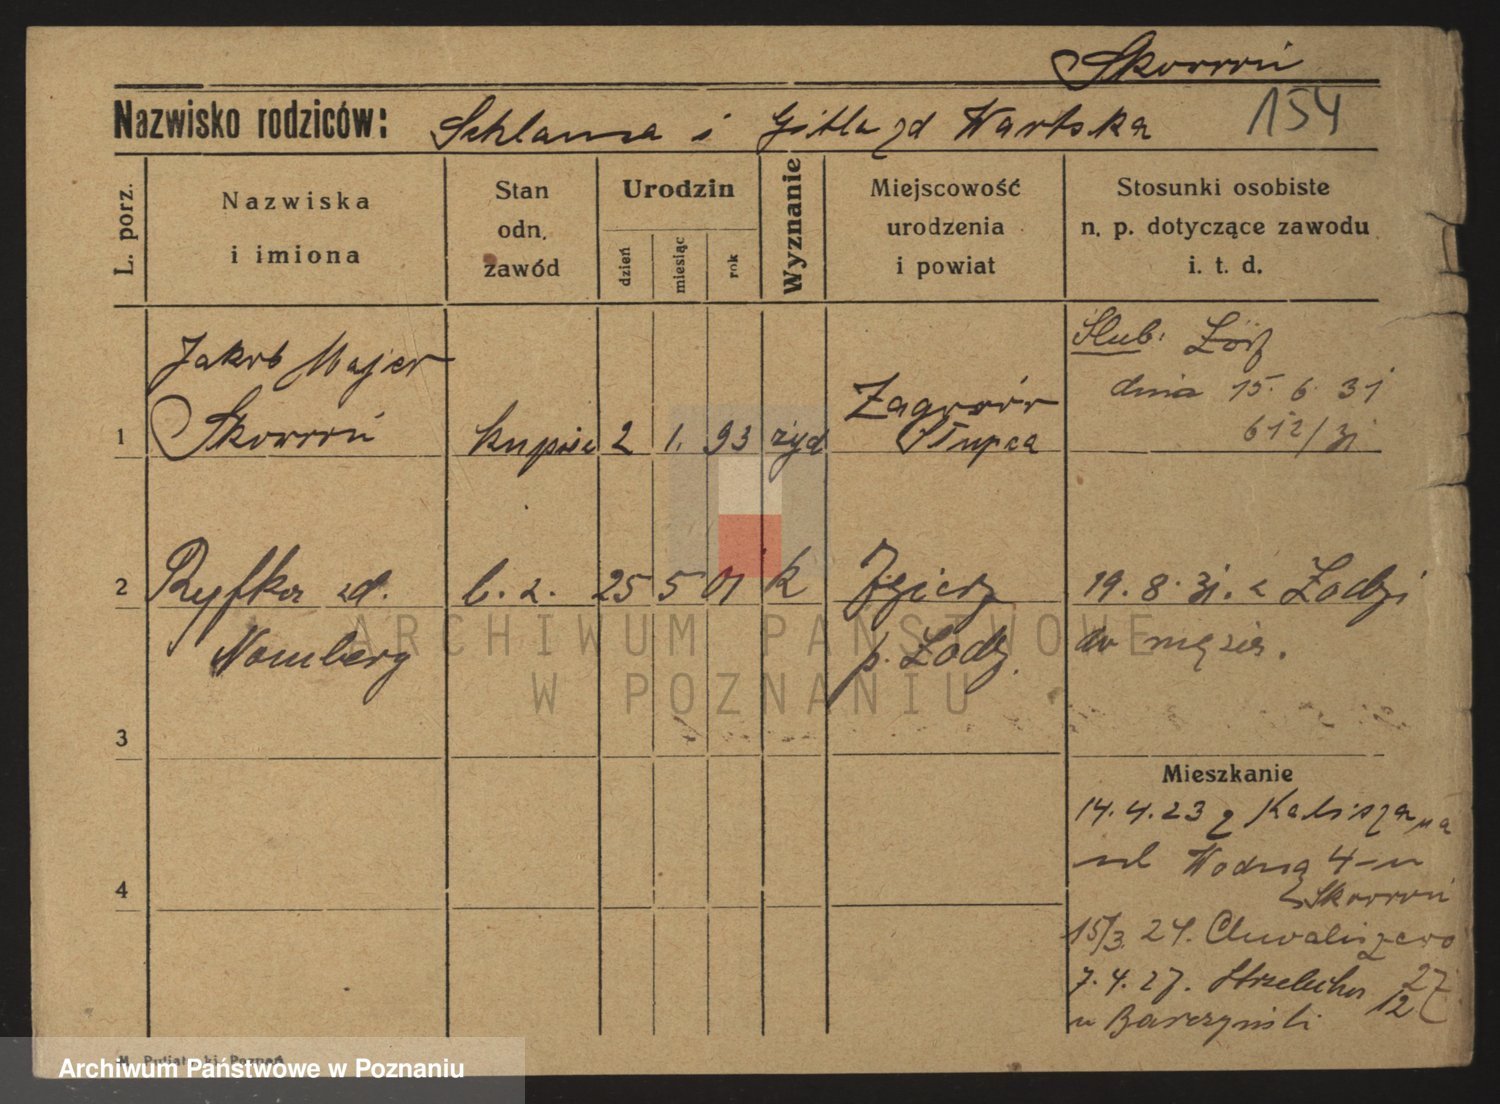 Skowroń
Nazwisko rodziców: Schlama i Gitla zd Wartska 154
L. porz.
Nazwiska
i imiona
Stan
odn.
zawód
Urodzin
dzień
miesiąc
rok
Wyznanie
Miejscowość
urodzenia
i powiat
Stosunki osobiste
n. p. dotyczące zawodu
i. t. d.
Jakób Majer
1 Skowroń kupiec 2 1. 93 żyd
Zagórów
Słupca
Ślub: Łódź
dnia 15. 6. 31
612/31
2 Ryfka zd. b. z. 25 5 01 k Zgierz 19. 8. 31. z Łodzi
Nomberg p. Łódź. do męża.
3
Mieszkanie
14. 4. 23 z Kalisza na
ul Wodną 4 - u
4 Skowroń
15/3. 24. Chwaliszewo
7. 4. 27. Strzelecka 27
12
u Barczyński
ARCHIWUM PAŃSTWOWE
W POZNANIU
Poznań
Archiwum Państwowe w Poznaniu